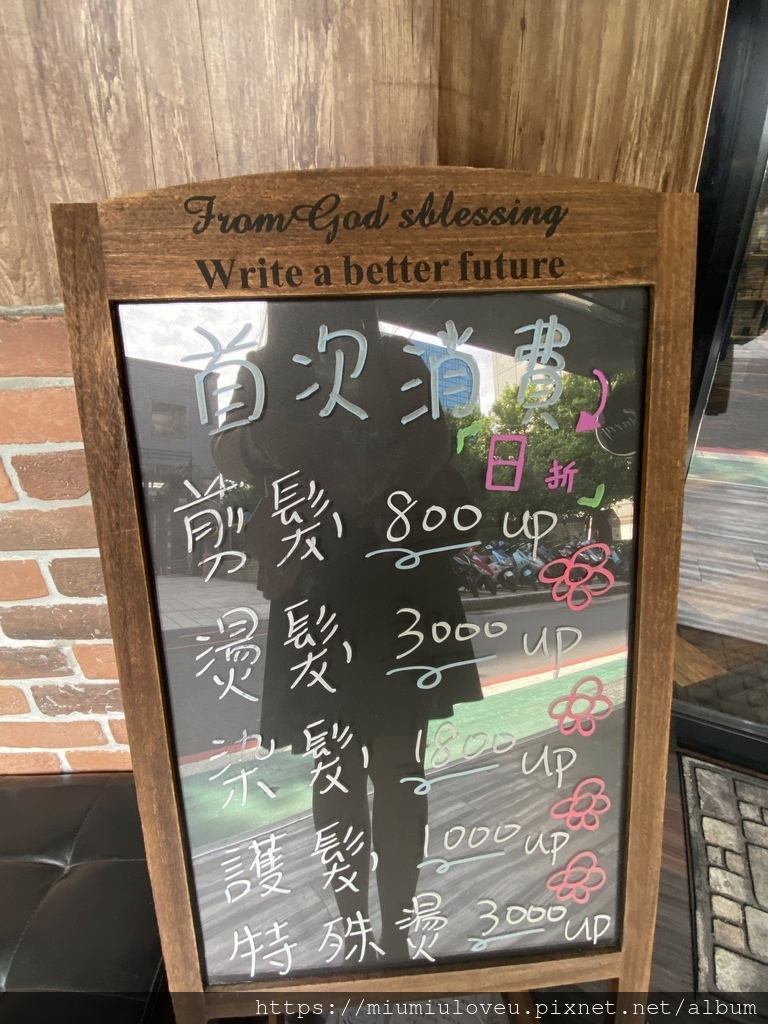 From God'sblessing
Write a better future
首次消費
8折
剪髮 800 up
燙髮 3000 up
染髮 1800 up
護髮 1000 up
特殊燙 3000 up
https://miumiuloveu.pixnet.net/album